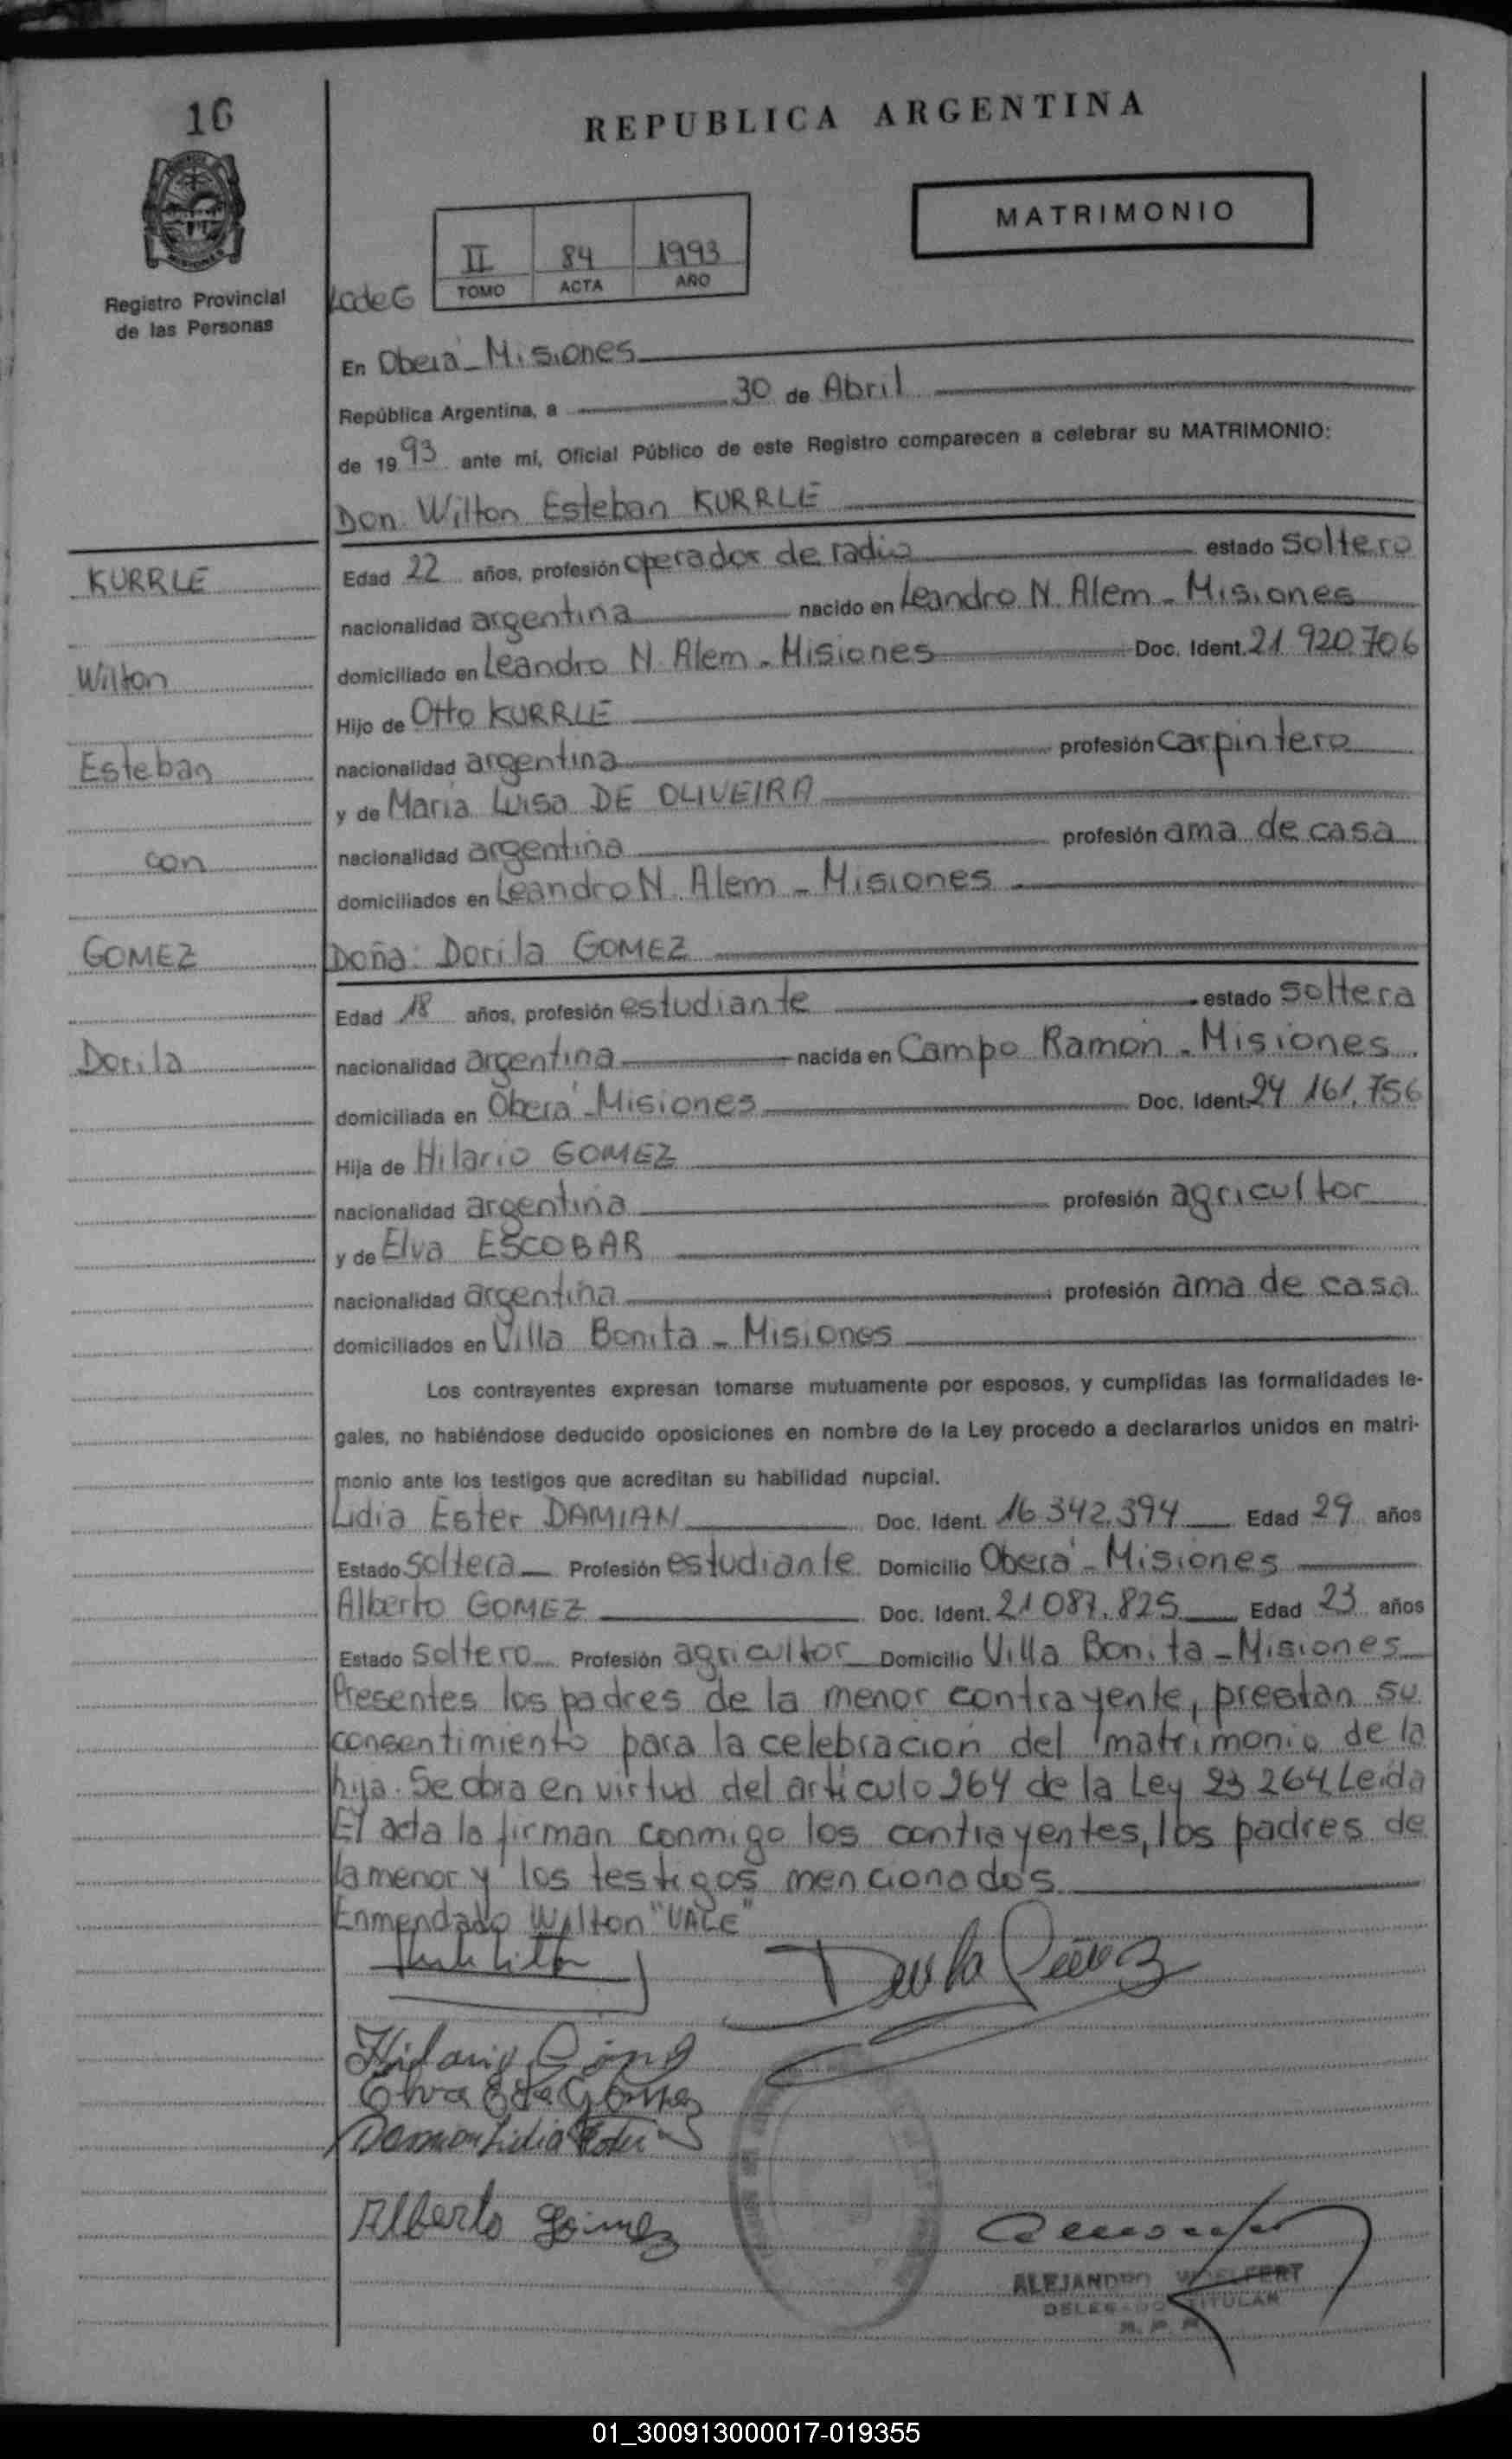 16
REPUBLICA ARGENTINA
MATRIMONIO
Registro Provincial
de las Personas
II 84 1993
TOMO ACTA AÑO
En Oberá - Misiones
República Argentina, a 30 de Abril
de 1993 ante mí, Oficial Público de este Registro comparecen a celebrar su MATRIMONIO:
Don Wilton Esteban KURRLE
KURRLE
Edad 22 años, profesión operador de radio estado soltero
nacionalidad argentina nacido en Leandro N. Alem - Misiones
Wilton
domiciliado en Leandro N. Alem - Misiones Doc. Ident. 21 920.706
Hijo de Otto KURRLE
Esteban
nacionalidad argentina profesión carpintero
y de María Luisa DE OLIVEIRA
con
nacionalidad argentina profesión ama de casa
domiciliados en Leandro N. Alem - Misiones
GOMEZ
Doña: Dorila GOMEZ
Edad 18 años, profesión estudiante estado soltera
Dorila
nacionalidad argentina nacida en Campo Ramón - Misiones
domiciliada en Oberá - Misiones Doc. Ident. 24 161.756
Hija de Hilario GOMEZ
nacionalidad argentina profesión agricultor
y de Elva ESCOBAR
nacionalidad argentina profesión ama de casa
domiciliados en Villa Bonita - Misiones
Los contrayentes expresan tomarse mutuamente por esposos, y cumplidas las formalidades le-
gales, no habiéndose deducido oposiciones en nombre de la Ley procedo a declararlos unidos en matri-
monio ante los testigos que acreditan su habilidad nupcial.
Lidia Ester DAMIAN Doc. Ident. 16 342.394 Edad 29 años
Estado soltera Profesión estudiante Domicilio Oberá - Misiones
Alberto GOMEZ Doc. Ident. 21 087.825 Edad 23 años
Estado soltero Profesión agricultor Domicilio Villa Bonita - Misiones
Presentes los padres de la menor contrayente, prestan su
consentimiento para la celebración del matrimonio de la
hija. Se obra en virtud del artículo 264 de la Ley 23 264 Leida
El acta la firman conmigo los contrayentes, los padres de
la menor y los testigos mencionados
Enmendado Wilton "VALE"
Hilario
Elva Gomez
Damian Lidia Ester
Alberto Gomez
ALEJANDRO WOELFERT
DELEGADO TITULAR
R. P. P.
01_300913000017-019355